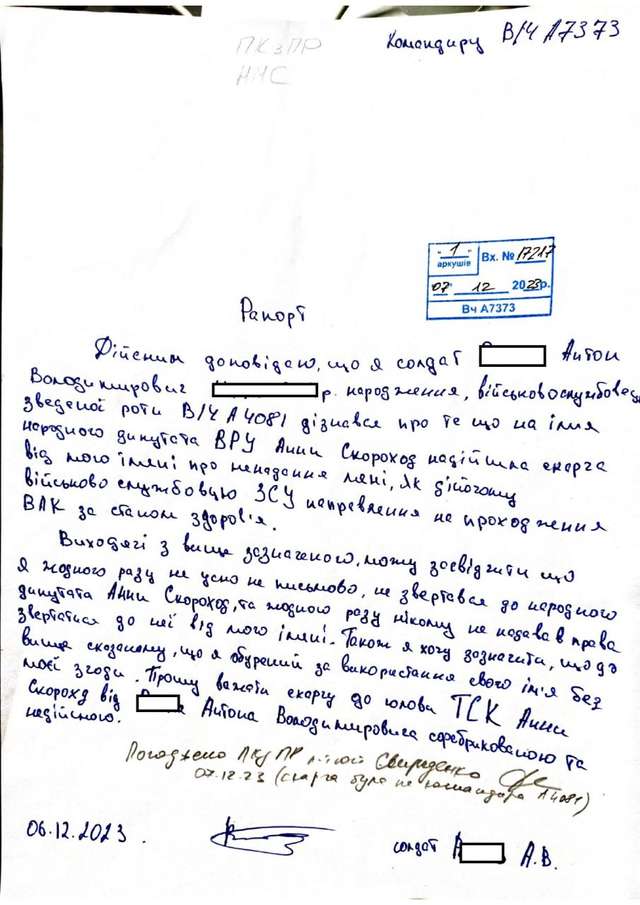 Командиру В/Ч А7373
ПКзПР
НМС
"1" аркушів Вх. № 17217
"07" 12 2023р.
Вч А7373
Рапорт
Дійсним доповідаю, що я солдат Антон
Володимирович р. народження, військовослужбовець
зведеної роти В/Ч А4081 дізнався про те що на імя
народного дипутата ВРУ Анни Скороход надійшла скарга
від мого імені про ненадання мені, як дійочому
військовослужбовцю ЗСУ направлення на проходження
ВЛК за станом здоров'я.
Виходячі з вище зазначеного, можу засвідчити що
я жодного разу не усно не письмово, не звертався до народного
дипутата Анни Скороход, та жодного разу нікому не надавав права
звертатися до неї від мого імені. Також я хочу зазначити, що до
вище сказаному, що я обурений за використання свого ім'я без
моєї згоди. Прошу важати скаргу до голови ТСК Анни
Скороход від Антона Володимировича сфабрикованою та
недійсною.
Погоджено Свириденко
07.12.23 (скарга була не командира А4081)
06.12.2023.
солдат А А.В.